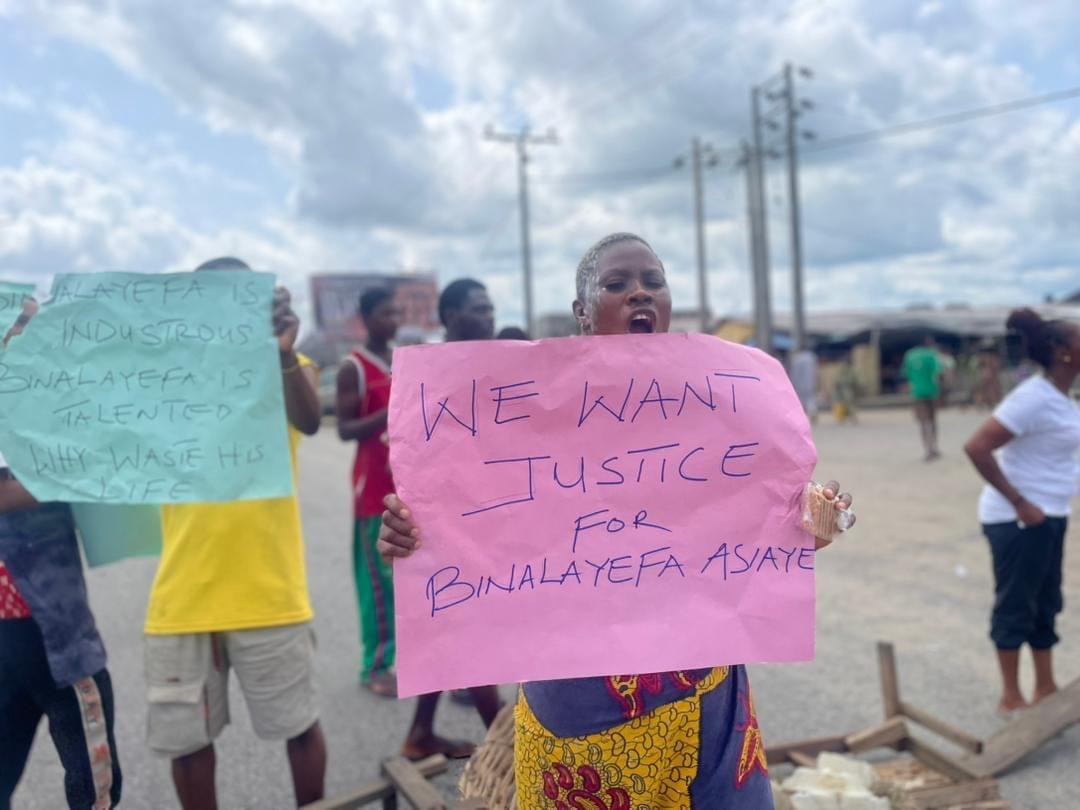 BINALAYEFA IS
INDUSTROUS
BINALAYEFA IS
TALENTED
WHY WASTE HIS
LIFE
WE WANT
JUSTICE
FOR
BINALAYEFA ASIAYE